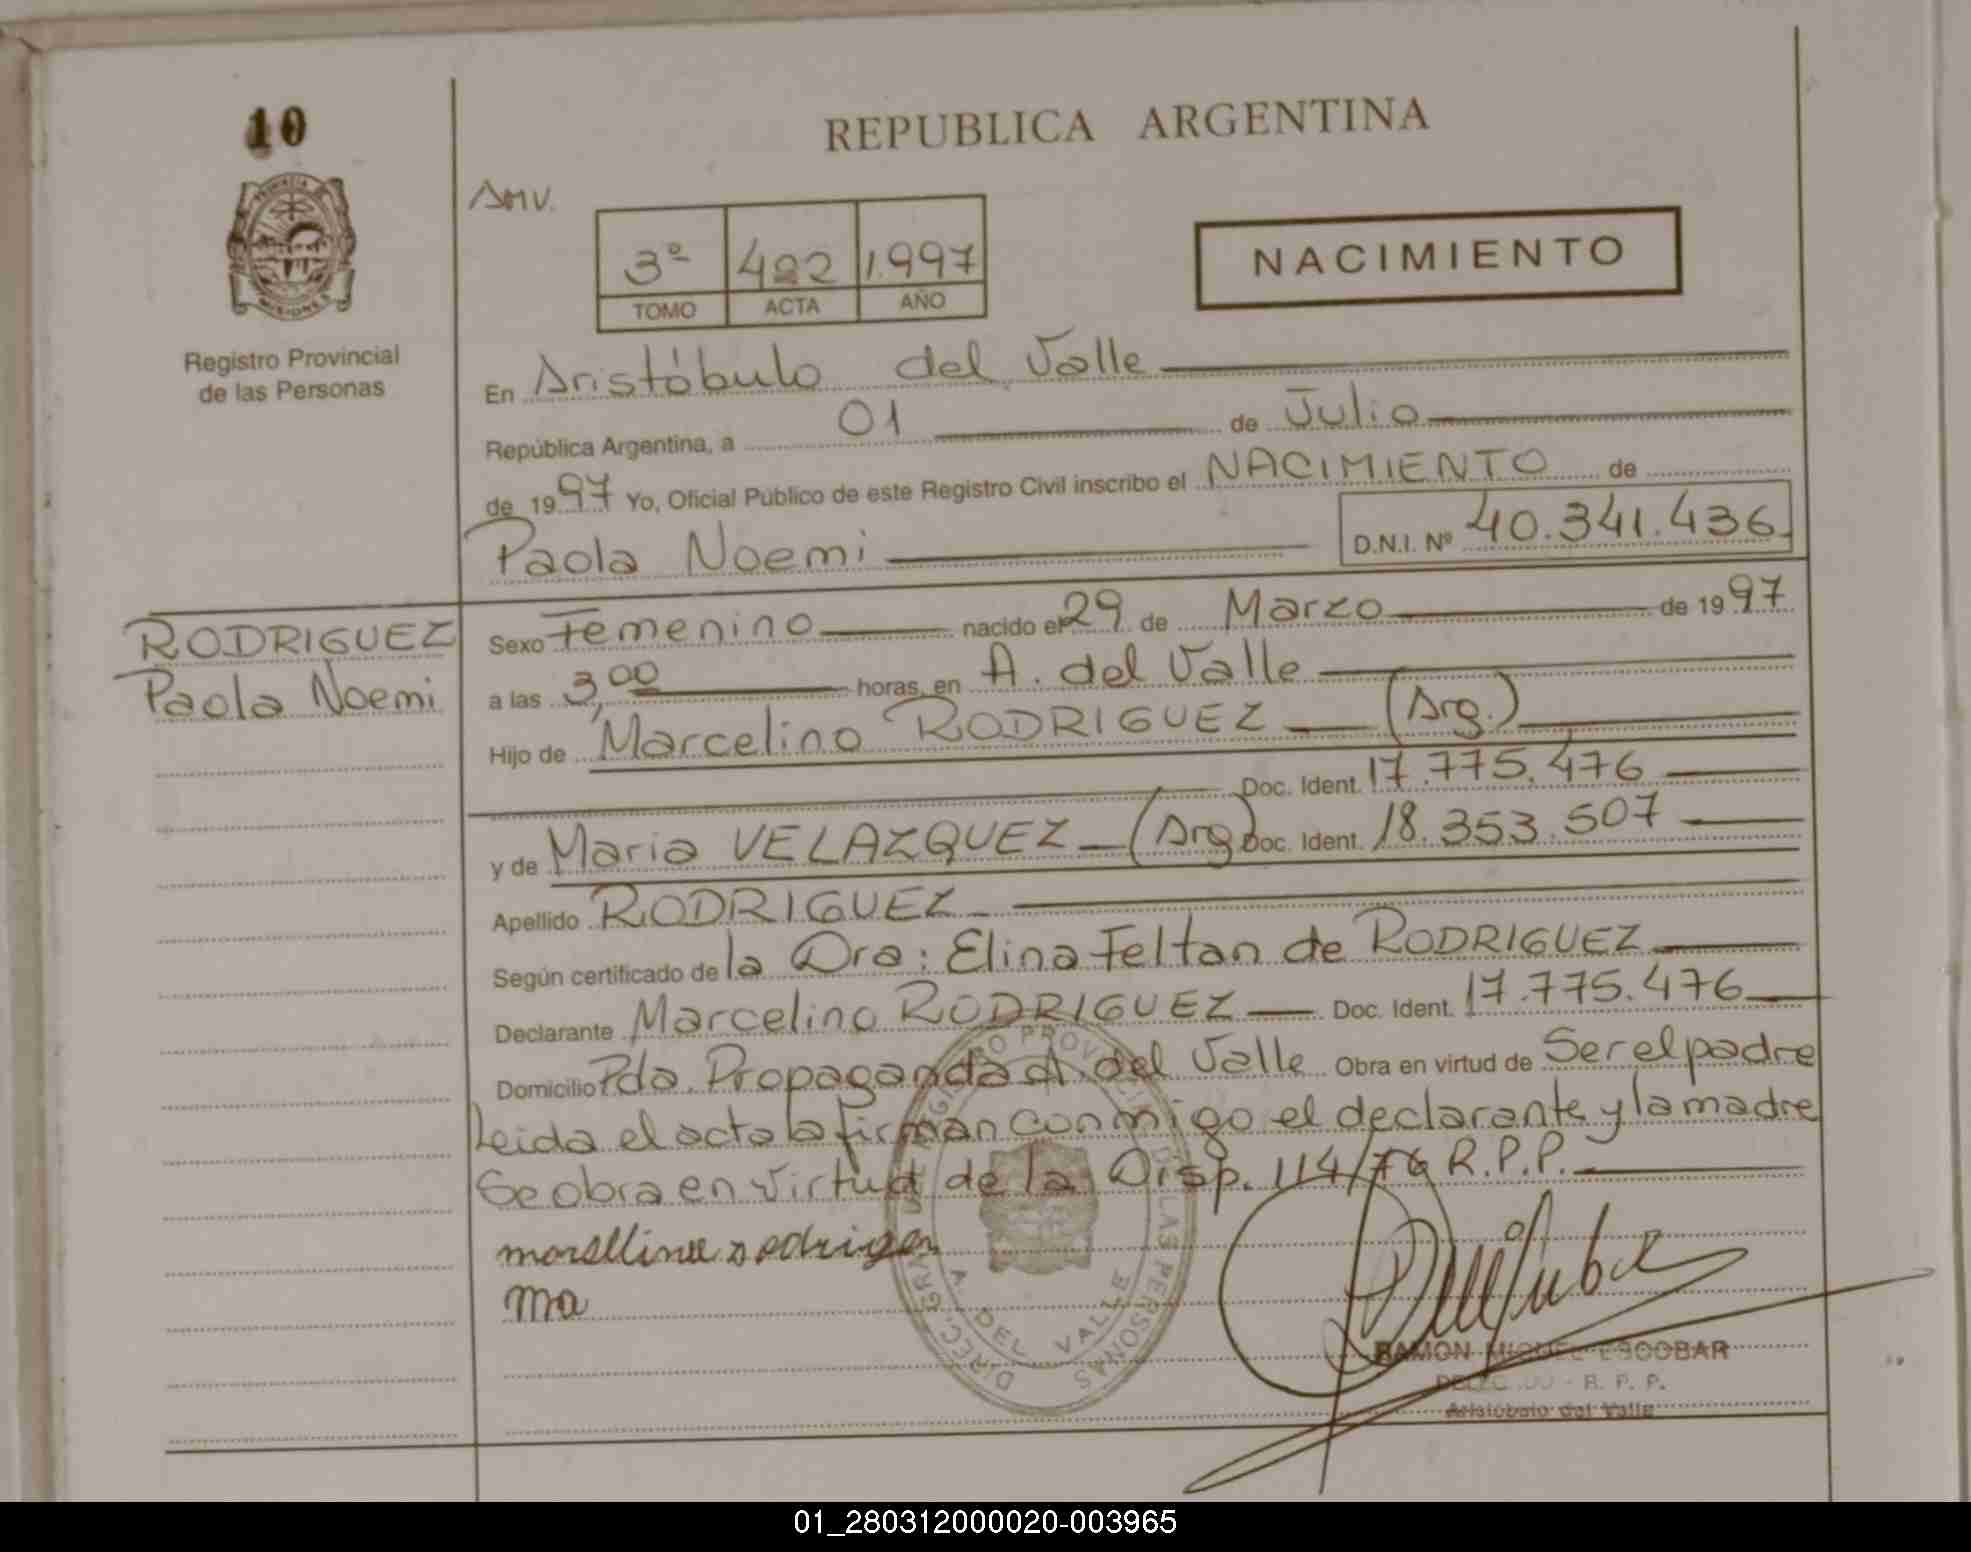 10
REPUBLICA ARGENTINA
AMV.
3º 422 1.997
TOMO ACTA AÑO
NACIMIENTO
PROVINCIA DE
MISIONES
Registro Provincial
de las Personas
En Aristóbulo del Valle
República Argentina, a 01 de Julio
de 1997 Yo, Oficial Público de este Registro Civil inscribo el NACIMIENTO de
Paola Noemi D.N.I. Nº 40.341.436
RODRIGUEZ
Paola Noemi
Sexo Femenino nacido el 29 de Marzo de 1997
a las 3,00 horas, en A. del Valle
Hijo de Marcelino RODRIGUEZ (Arg.)
Doc. Ident. 17.775.476
y de Maria VELAZQUEZ (Arg) Doc. Ident. 18.353.507
Apellido RODRIGUEZ
Según certificado de la Dra: Elina Feltan de RODRIGUEZ
Declarante Marcelino RODRIGUEZ Doc. Ident. 17.775.476
Domicilio Pda. Propaganda A. del Valle Obra en virtud de Ser el padre
Leida el acta la firman conmigo el declarante y la madre
Se obra en virtud de la Disp. 114/76 R.P.P.
DIREC. GRAL DE REGISTRO PROVINCIAL DE LAS PERSONAS
A. DEL VALLE
RAMON MIGUEL ESCOBAR
DELEGADO - R. P. P.
Aristóbulo del Valle
01_280312000020-003965